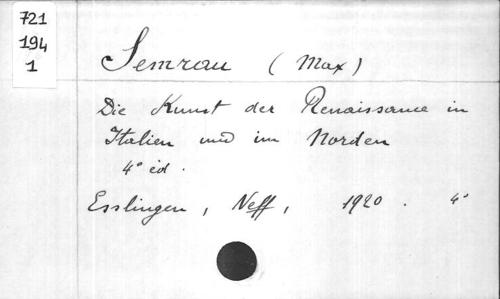 721
194
1
Semrau (Max)
Die Kunst der Renaissance in
Italien und im Norden
4° éd.
Esslingen, Neff, 1920. 4°